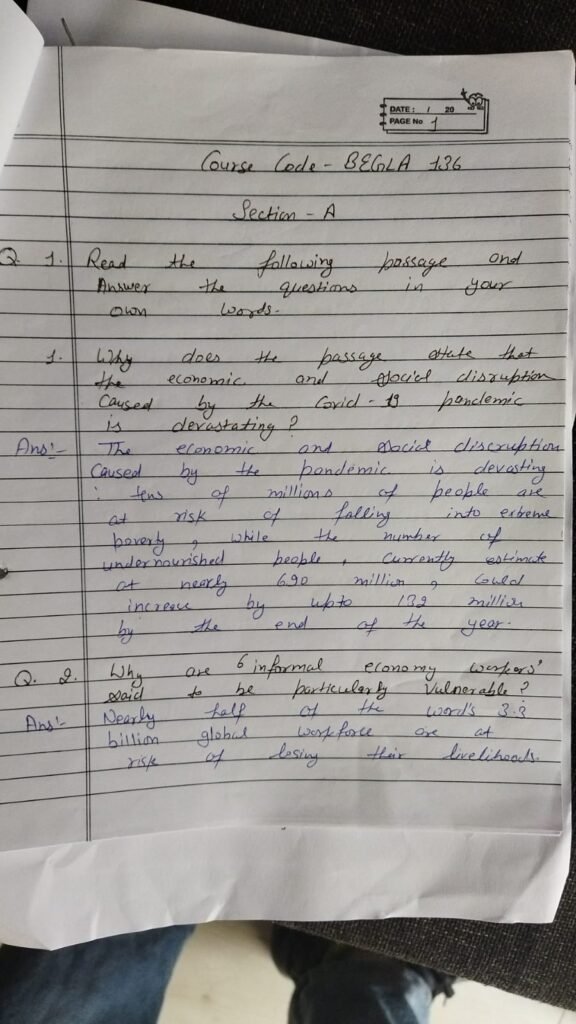 DATE: / 20
PAGE No 1
Course Code - BEGLA 136
Section - A
Q 1. Read the following passage and
Answer the questions in your
own words.
1. Why does the passage state that
the economic and social disruption
Caused by the Covid - 19 pandemic
is devastating ?
Ans:- The economic and social discruption
Caused by the pandemic is devasting
: tens of millions of people are
at risk of falling into extreme
poverty , while the number of
undernourished people , Currently estimate
at nearly 690 million , Could
increase by upto 132 million
by the end of the year.
Q. 2. Why are 'informal economy workers'
said to be particularly Vulnerable ?
Ans:- Nearly half of the word's 3.3
billion global workforce are at
risk of losing their livelihoods.